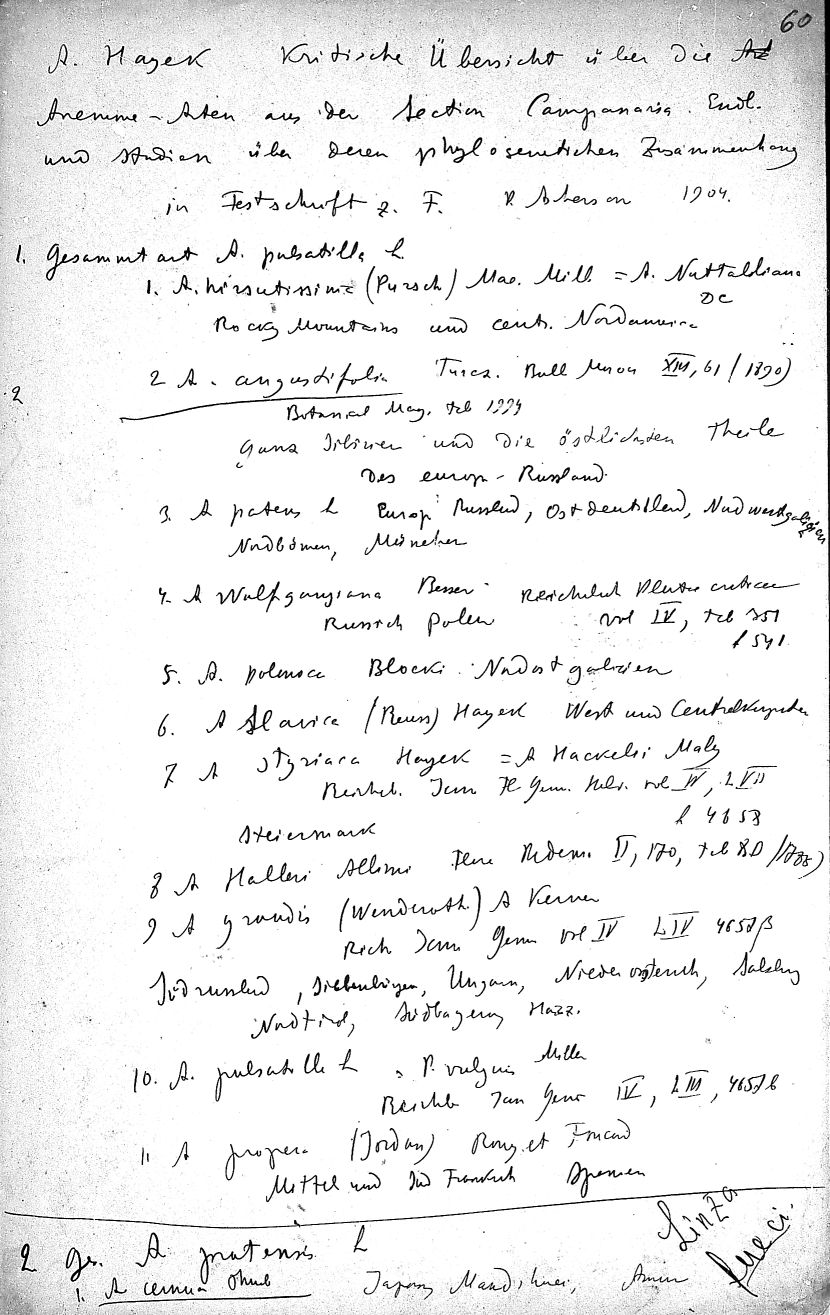 60
A. Hayek Kritische Übersicht über die
Anemone-Arten aus der Section Campanaria Endl.
und Studien über deren phylogenetischen Zusammenhang
in Festschrift z. F. P. Ascherson 1904.
1. Gesammtart A. pulsatilla L
1. A. hirsutissima (Pursch) Mac. Mill. = A. Nuttaldiana
DC
Rocky Mountains und centr. Nordamerica
2 A. angustifolia Turcz. Bull Mosou XIII, 61 (1890)
2
Botanical Mag. tab 1994
Ganz Sibirien und die östlichsten Theile
des europ-Russland
3. A patens L Europ Russland, Ostdeutschland, Nordwestgalizien
Nordbömen, München
4. A Wolfgangiana Besser Reichenb Plantae criticae
Russich Polen vol IV, tab 351
f 541
5. A. polonica Blocki Nordost galizien
6. A Slavica (Reuss) Hayek West und Centralkarpaten
7 A Styriaca Hayek = A Hackelii Maly
Reichb. Icon Fl Germ. Helv. vol IV, LVII
f 4658
Steiermark
8 A Halleri Allioni Flora Pedem. II, 170, tab 80 (1785)
9 A grandis (Wenderoth.) A Kerner
Reich Icon Germ vol IV LIV 4657β
Südrussland, Siebenbürgen, Ungarn, Niederösterreich, Salzburg
Nordtirol, Südbayern, Harz.
10. A. pulsatilla L = P. vulgaris Miller
Reichb Icon Germ IV, LIII, 4657b
11 A propera (Jordan) Rouy et Foucaud
Mittel und Süd Frankreich Spanien
2 ges. A pratensis L
1. A cernua Thunb Japan, Mandschurei, Amur